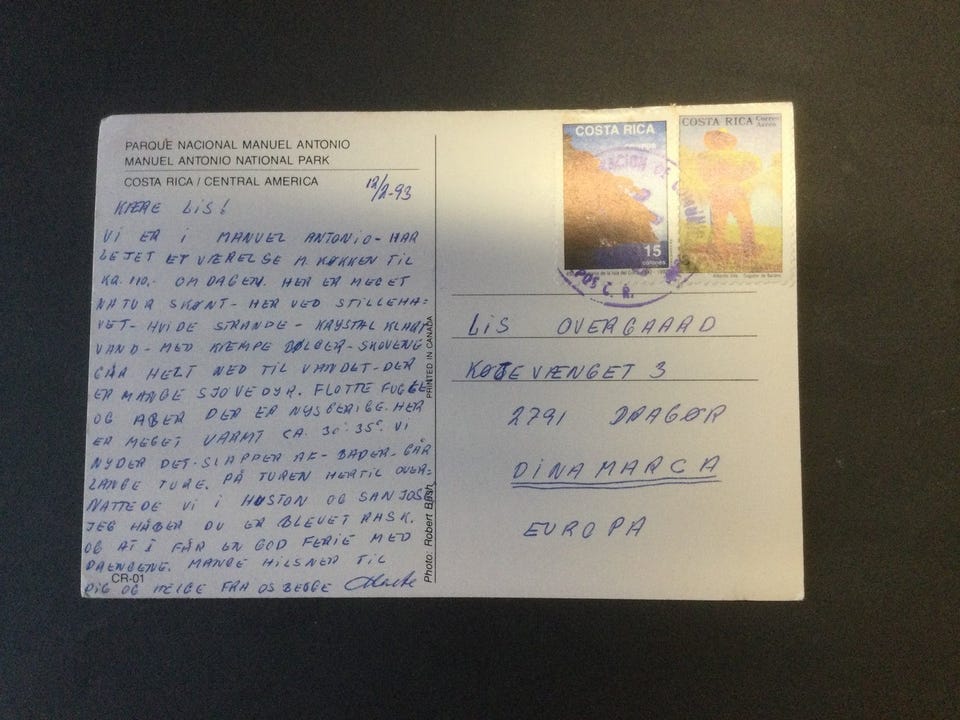 PARQUE NACIONAL MANUEL ANTONIO
MANUEL ANTONIO NATIONAL PARK
COSTA RICA / CENTRAL AMERICA
12/2-93
KÆRE LIS!
VI ER I MANUEL ANTONIO - HAR
LEJET ET VÆRELSE M. KØKKEN TIL
KR. 110,- OM DAGEN. HER ER MEGET
NATUR SKØNT - HER VED STILLEHA-
VET - HVIDE STRANDE - KRYSTAL KLART
VAND - MED KÆMPE BØLGER - SKOVENE
GÅR HELT NED TIL VANDET - DER
ER MANGE SJOVE DYR. FLOTTE FUGLE
OG ABER DER ER NYSGERIGE. HER
ER MEGET VARMT CA. 30°-35°. VI
NYDER DET - SLAPPER AF - BADER - GÅR
LANGE TURE. PÅ TUREN HERTIL OVER-
NATTEDE VI I HUSTON OG SAN JOSE
JEG HÅBER DU ER BLEVET RASK.
OG AT I FÅR EN GOD FERIE MED
DRENGENE. MANGE HILSNER TIL
DIG OG HELGE FRA OS BEGGE
CR-01
PRINTED IN CANADA
Photo: Robert Bush
COSTA RICA
15
colones
COSTA RICA Correo
Aéreo
LIS OVERGAARD
KØJEVÆNGET 3
2791 DRAGØR
DINAMARCA
EUROPA